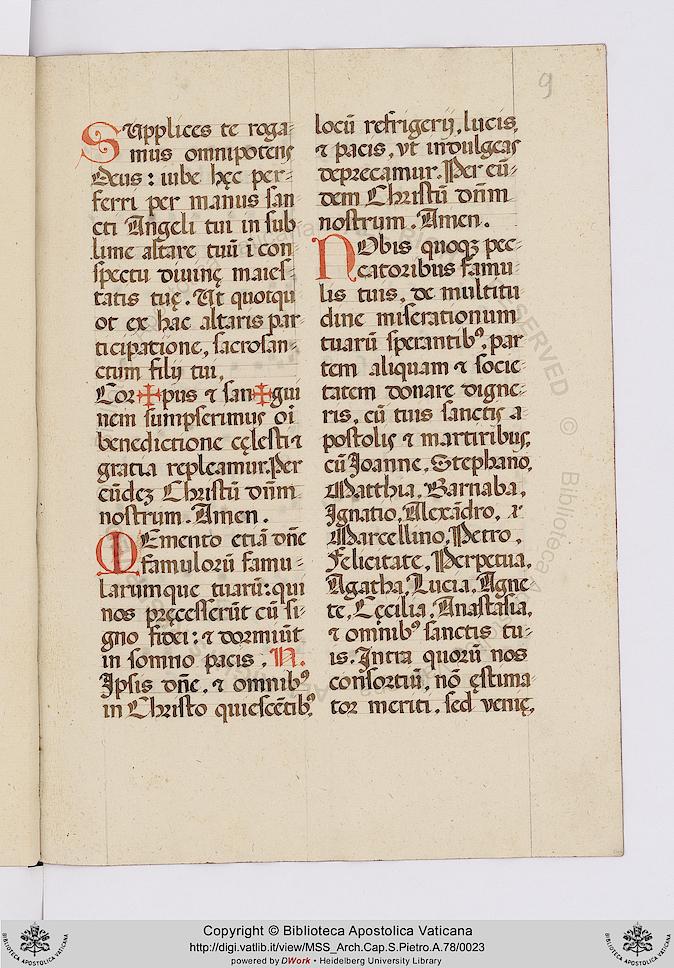 9
Supplices te roga⸗
mus omnipotens
Deus: iube hęc per⸗
ferri per manus san⸗
cti Angeli tui in sub
lime altare tuũ ĩ con⸗
spectu diuinę maies⸗
tatis tuę. Ut quotqu
ot ex hac altaris par⸗
ticipatione, sacrosan⸗
ctum filij tui,
Cor✠pus ⁊ san✠gui
nem sumpserimus oĩ
benedictione cęlesti ⁊
gratia repleamur. Per
eũdeʒ Christũ dñm
nostrum. Amen.
Memento etiã dñe
famulorũ famu⸗
larumque tuarũ: qui
nos pręcesserũt cũ si⸗
gno fidei: ⁊ dormiũt
in somno pacis. N.
Ipsis dñe, ⁊ omnibꝰ
in Christo quiescẽtibꝰ,
locũ refrigerij, lucis,
⁊ pacis, vt indulgeas
deprecamur. Per eũ⸗
dem Christũ dñm
nostrum. Amen.
Nobis quoqꝫ pec⸗
catoribus famu⸗
lis tuis, de multitu
dine miserationum
tuarũ sperantibꝰ, par
tem aliquam ⁊ socie⸗
tatem donare digne⸗
ris, cũ tuis sanctis a⸗
postolis ⁊ martiribus,
cũ Ioanne, Stephano,
Matthia, Barnaba,
Ignatio, Alexãdro,
Marcellino, Petro,
Felicitate, Perpetua,
Agatha, Lucia, Agne
te, Cęcilia, Anastasia,
⁊ omnibꝰ sanctis tu⸗
is. Intra quorũ nos
consortiũ, nõ ęstima⸗
tor meriti, sed venię,
Copyright © Biblioteca Apostolica Vaticana
http://digi.vatlib.it/view/MSS_Arch.Cap.S.Pietro.A.78/0023
powered by DWork • Heidelberg University Library
BIBLIOTECA APOSTOLICA VATICANA
BIBLIOTECA APOSTOLICA VATICANA